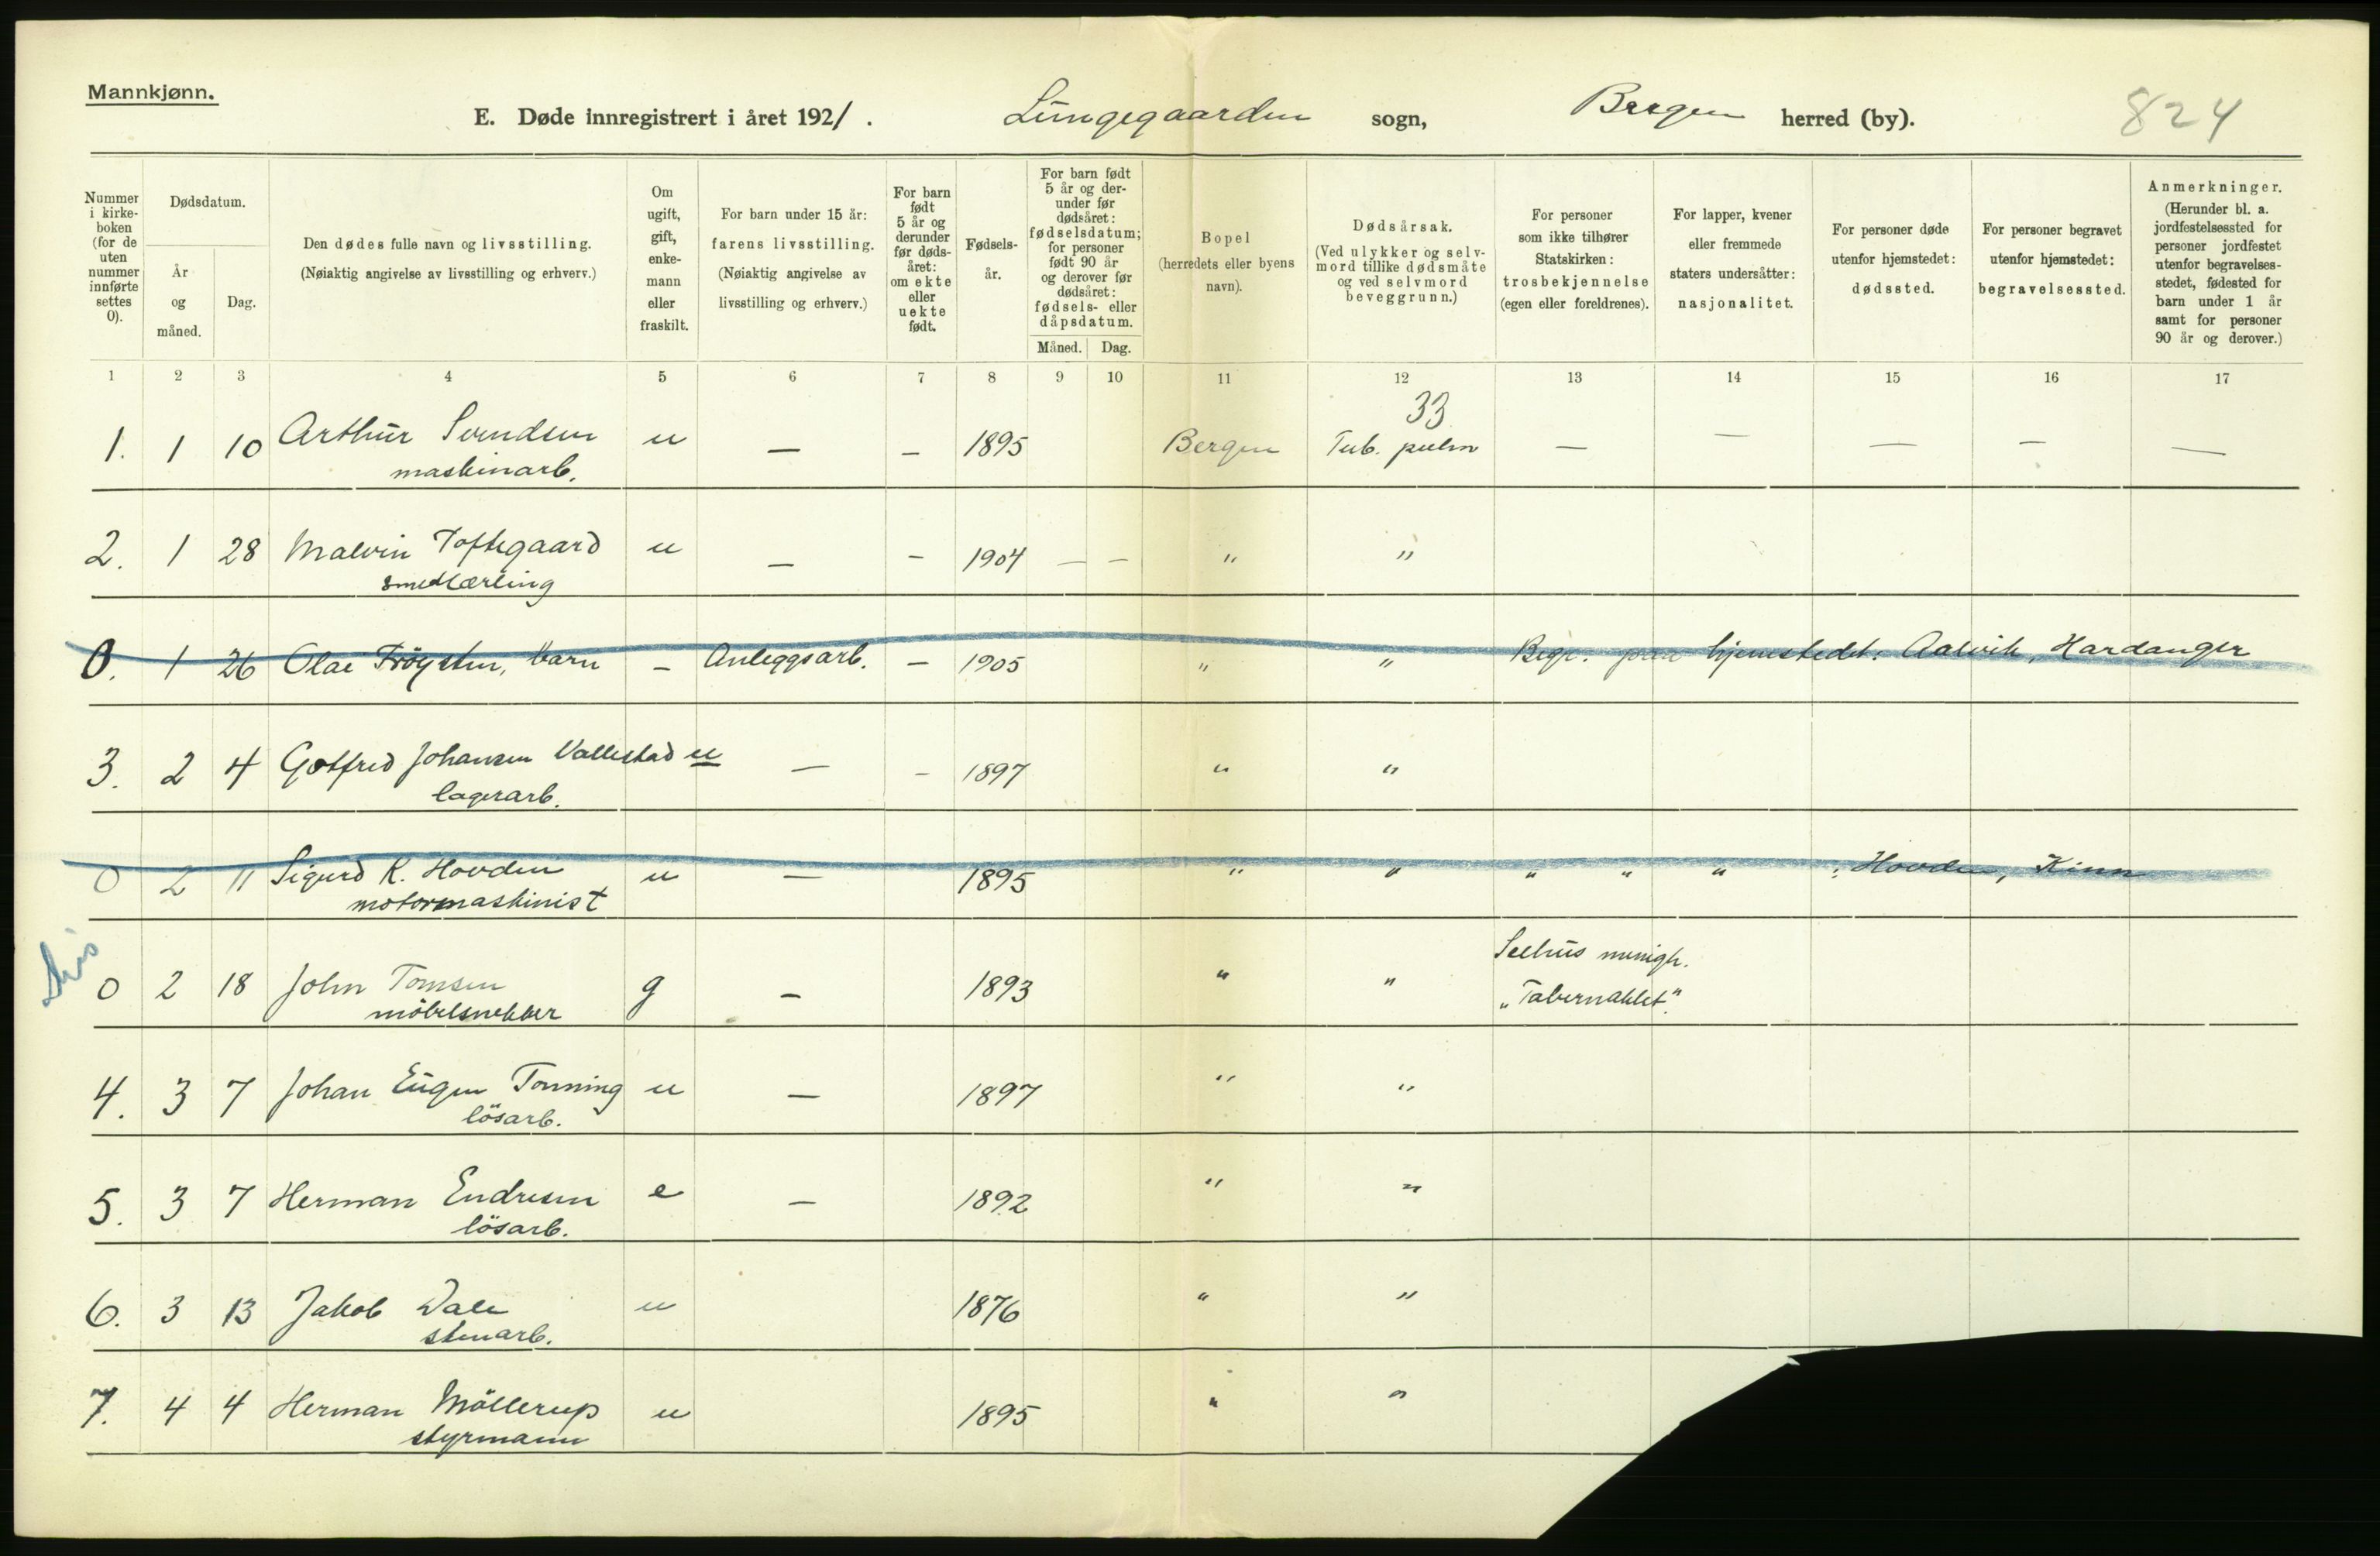 Mannkjønn.
E. Døde innregistrert i året 1921. Lungegaarden sogn, Bergen herred (by). 824
Nummer i kirke-boken (for de uten nummer innførte settes 0).
Dødsdatum.
År og måned.
Dag.
Den dødes fulle navn og livsstilling.
(Nøiaktig angivelse av livsstilling og erhverv.)
Om ugift, gift, enke-mann eller fraskilt.
For barn under 15 år: farens livsstilling.
(Nøiaktig angivelse av livsstilling og erhverv.)
For barn født 5 år og derunder før døds-året: om ekte eller uekte født.
Fødsels-år.
For barn født 5 år og der-under før dødsåret: fødselsdatum; for personer født 90 år og derover før dødsåret: fødsels- eller dåpsdatum.
Måned.
Dag.
Bopel (herredets eller byens navn).
Dødsårsak.
(Ved ulykker og selv-mord tillike dødsmåte og ved selvmord beveggrunn.)
For personer som ikke tilhører Statskirken: trosbekjennelse (egen eller foreldrenes).
For lapper, kvener eller fremmede staters undersåtter: nasjonalitet.
For personer døde utenfor hjemstedet: dødssted.
For personer begravet utenfor hjemstedet: begravelsessted.
Anmerkninger.
(Herunder bl. a. jordfestelsessted for personer jordfestet utenfor begravelses-stedet, fødested for barn under 1 år samt for personer 90 år og derover.)
1 2 3 4 5 6 7 8 9 10 11 12 13 14 15 16 17
33
1. 1 10 Arthur Svendsen u — — 1895 Bergen Tub. pulm — — — — —
maskinarb.
2. 1 28 Malvin Toftegaard u — — 1904 — — " "
smedlærling
0. 1 26 Olai Tröysten, barn — Anleggsarb. — 1905 " " Begr. paa hjemstedet: Aalvik, Hardanger
3. 2 4 Gotfred Johansen Vallestad u — — 1897 " "
lagerarb.
0 2 11 Sigurd K. Hovden u — 1895 " " " " " : Hovden, Kinn
motormaskinist
0 2 18 John Tomsen g — 1893 " " Seehus menigh.
möbelsnekker "Tabernaklet".
4. 3 7 Johan Eugen Tonning u — 1897 " "
lösarb.
5. 3 7 Herman Endresen e — 1892 " "
lösarb.
6. 3 13 Jakob Dale u 1876 " "
stenarb.
7. 4 4 Herman Möllerup u 1895 " "
styrmann